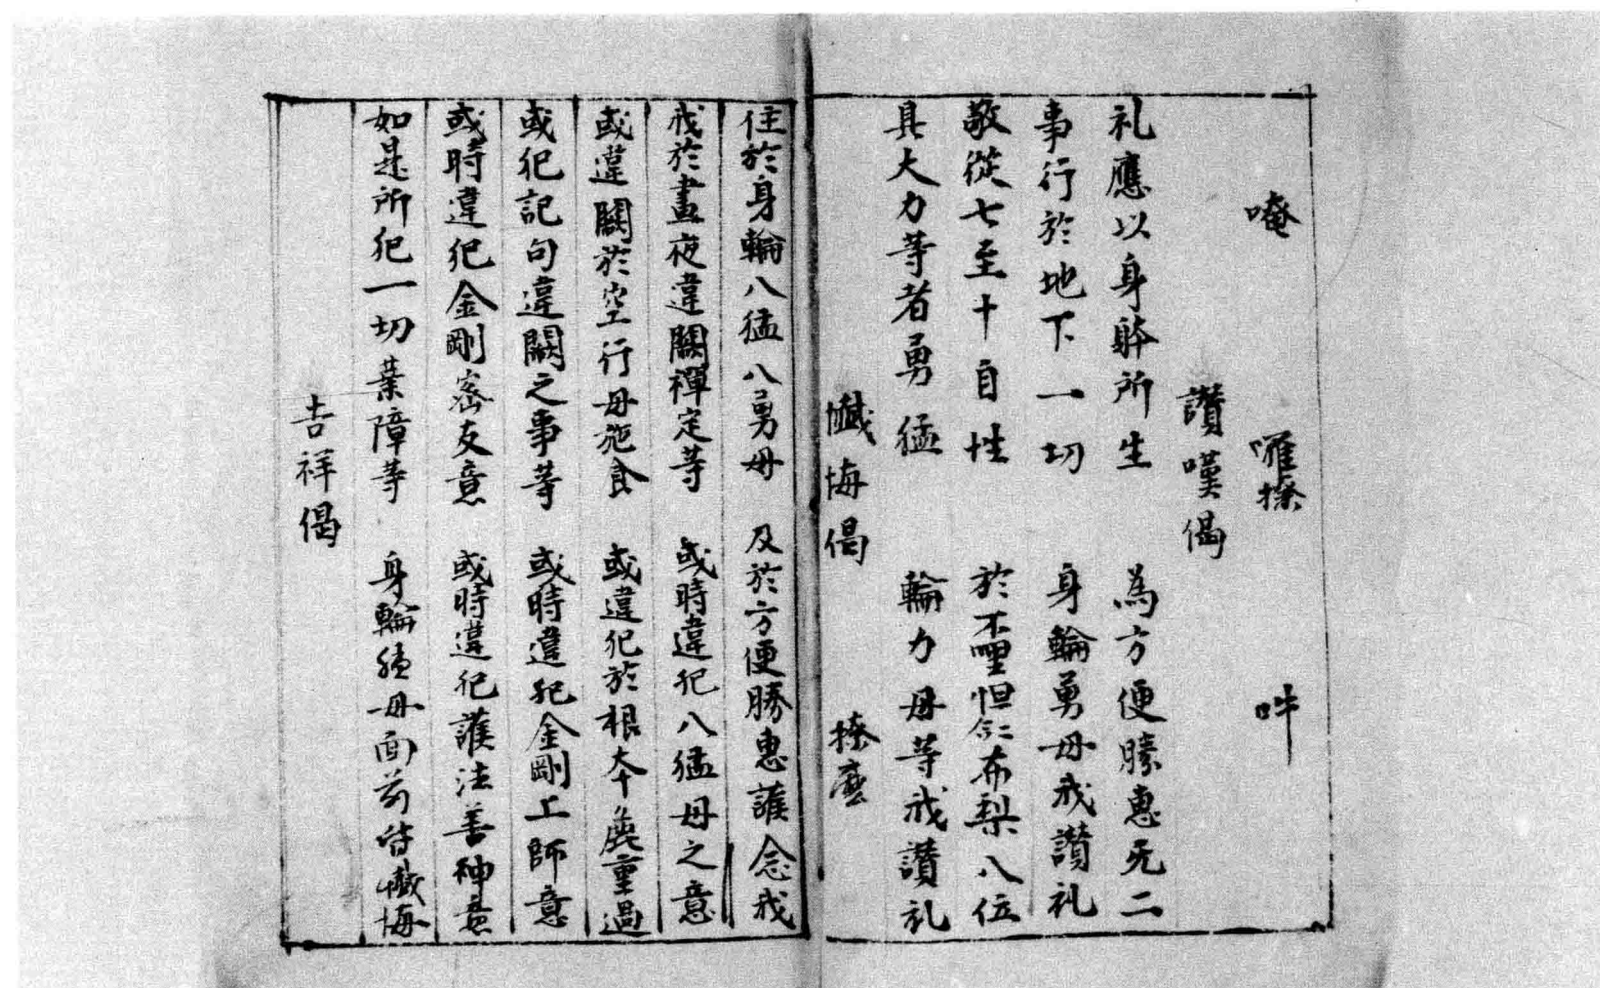 唵 囉撩 吽
讚嘆偈
礼應以身躰所生 為方便勝惠无二
事行於地下一切 身輪勇母我讃礼
敬從七至十自性 於不哩怛㖿布梨八位
具大力等者勇猛 輪力母等我讃礼
懺悔偈 撩麼
住於身輪八猛八勇母 及於方便勝惠護念我
我於晝夜違闕禪定等 或時違犯八猛母之意
或違闕於空行母施食 或違犯於根本麁重過
或犯記句違闕之事等 或時違犯金剛上師意
或時違犯金剛密友意 或時違犯護法善神意
如是所犯一切業障等 身輪猛母面前皆懺悔
吉祥偈